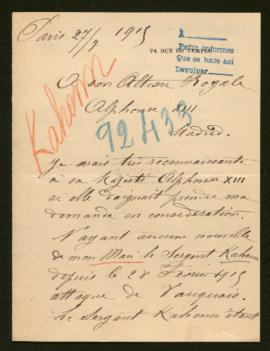 Paris 27/7 1915
74 RUE DU TEMPLE
A
Pedir informes
Que se hace así
Devolver
A Son Altesse Royale
Alphonse XIII
Madrid.
Kahenn
92433
Je serais très reconnaissante
à sa Majesté Alphonse XIII
si elle daignait prendre ma
demande en considération.
N'ayant aucune nouvelle
de mon Mari le Sergent Kahenn
depuis le 28 Février 1915
attaque de Vauquois.
Le Sergent Kahenn étant